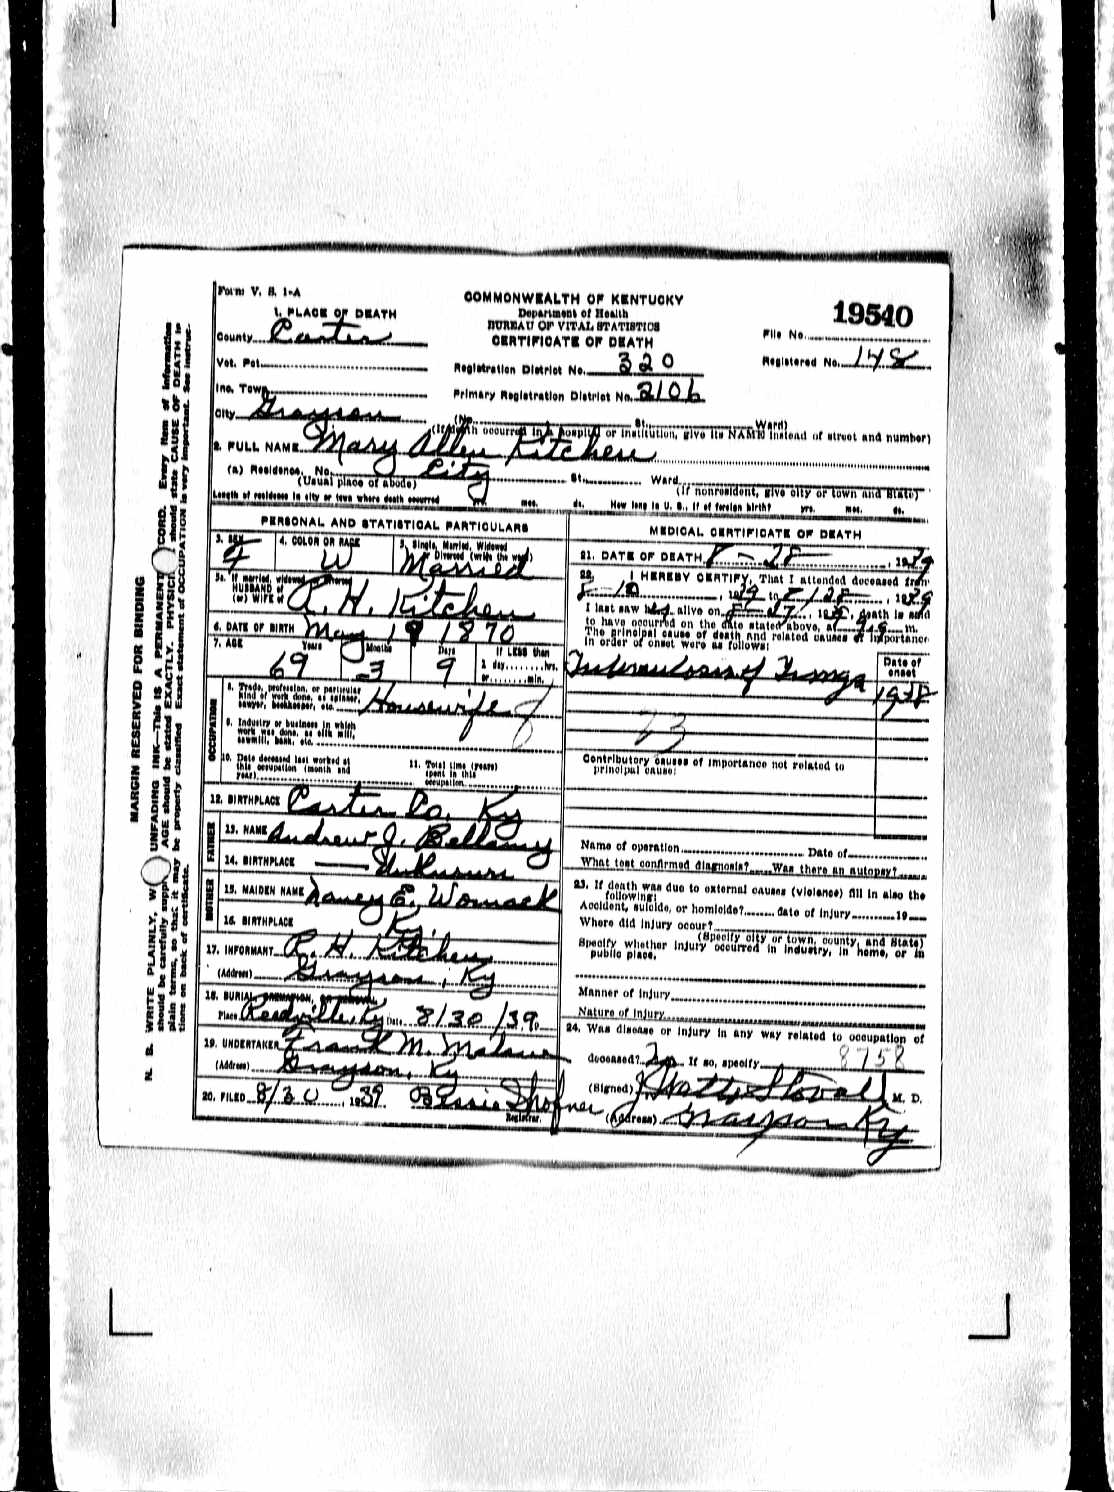 Form V. S. 1-A
COMMONWEALTH OF KENTUCKY
Department of Health
BUREAU OF VITAL STATISTICS
CERTIFICATE OF DEATH
19540
File No.
Registered No. 148
1. PLACE OF DEATH
County Carter
Vot. Pct.
Registration District No. 320
Inc. Town
Primary Registration District No. 2106
City Grayson (No. St. Ward)
(If death occurred in a hospital or institution, give its NAME instead of street and number)
2. FULL NAME Mary Allen Kitchen
(a) Residence. No. City St. Ward
(Usual place of abode) (If nonresident, give city or town and State)
Length of residence in city or town where death occurred yrs. mos. ds. How long in U. S., if of foreign birth? yrs. mos. ds.
PERSONAL AND STATISTICAL PARTICULARS
3. SEX F
4. COLOR OR RACE W
5. Single, Married, Widowed or Divorced (write the word) Married
5a. If married, widowed or divorced
HUSBAND of
(or) WIFE of R. H. Kitchen
6. DATE OF BIRTH May 19 1870
7. AGE Years 69 Months 3 Days 9 If LESS than
1 day, hrs.
or min.
OCCUPATION
8. Trade, profession, or particular
kind of work done, as spinner,
sawyer, bookkeeper, etc. Housewife
9. Industry or business in which
work was done, as silk mill,
sawmill, bank, etc.
10. Date deceased last worked at
this occupation (month and
year)
11. Total time (years)
spent in this
occupation
12. BIRTHPLACE Carter Co. Ky
FATHER
13. NAME Andrew J. Bellamy
14. BIRTHPLACE Unknown
MOTHER
15. MAIDEN NAME Nancy E. Womack
16. BIRTHPLACE Ky.
17. INFORMANT R. H. Kitchen
(Address) Grayson, Ky
18. BURIAL, CREMATION, OR REMOVAL
Place Reedville, Ky Date 8/30/39
19. UNDERTAKER Frank M.
(Address) Grayson, Ky
20. FILED 8/30, 1939 Bessie Shofner
Registrar.
MEDICAL CERTIFICATE OF DEATH
21. DATE OF DEATH 8-28-, 1939
22. I HEREBY CERTIFY, That I attended deceased from
8-10, 1939 to 8/28, 1939
I last saw her alive on 8-27, 1939, death is said
to have occurred on the date stated above, at m.
The principal cause of death and related causes of importance
in order of onset were as follows:
Date of
onset
Tuberculosis of Lungs 1938
23
Contributory causes of importance not related to
principal cause:
Name of operation Date of
What test confirmed diagnosis? Was there an autopsy?
23. If death was due to external causes (violence) fill in also the
following:
Accident, suicide, or homicide? date of injury 19
Where did injury occur?
(Specify city or town, county, and State)
Specify whether injury occurred in industry, in home, or in
public place.
Manner of injury
Nature of injury
24. Was disease or injury in any way related to occupation of
8758
deceased? No If so, specify
(Signed) J Watts Stovall M. D.
(Address) Grayson Ky
MARGIN RESERVED FOR BINDING
N. B. WRITE PLAINLY, UNFADING INK—THIS IS A PERMANENT RECORD. Every item of information
should be carefully supplied. AGE should be stated EXACTLY. PHYSICIANS should state CAUSE OF DEATH in
plain terms, so that it may be properly classified. Exact statement of OCCUPATION is very important. See instruc-
tions on back of certificate.